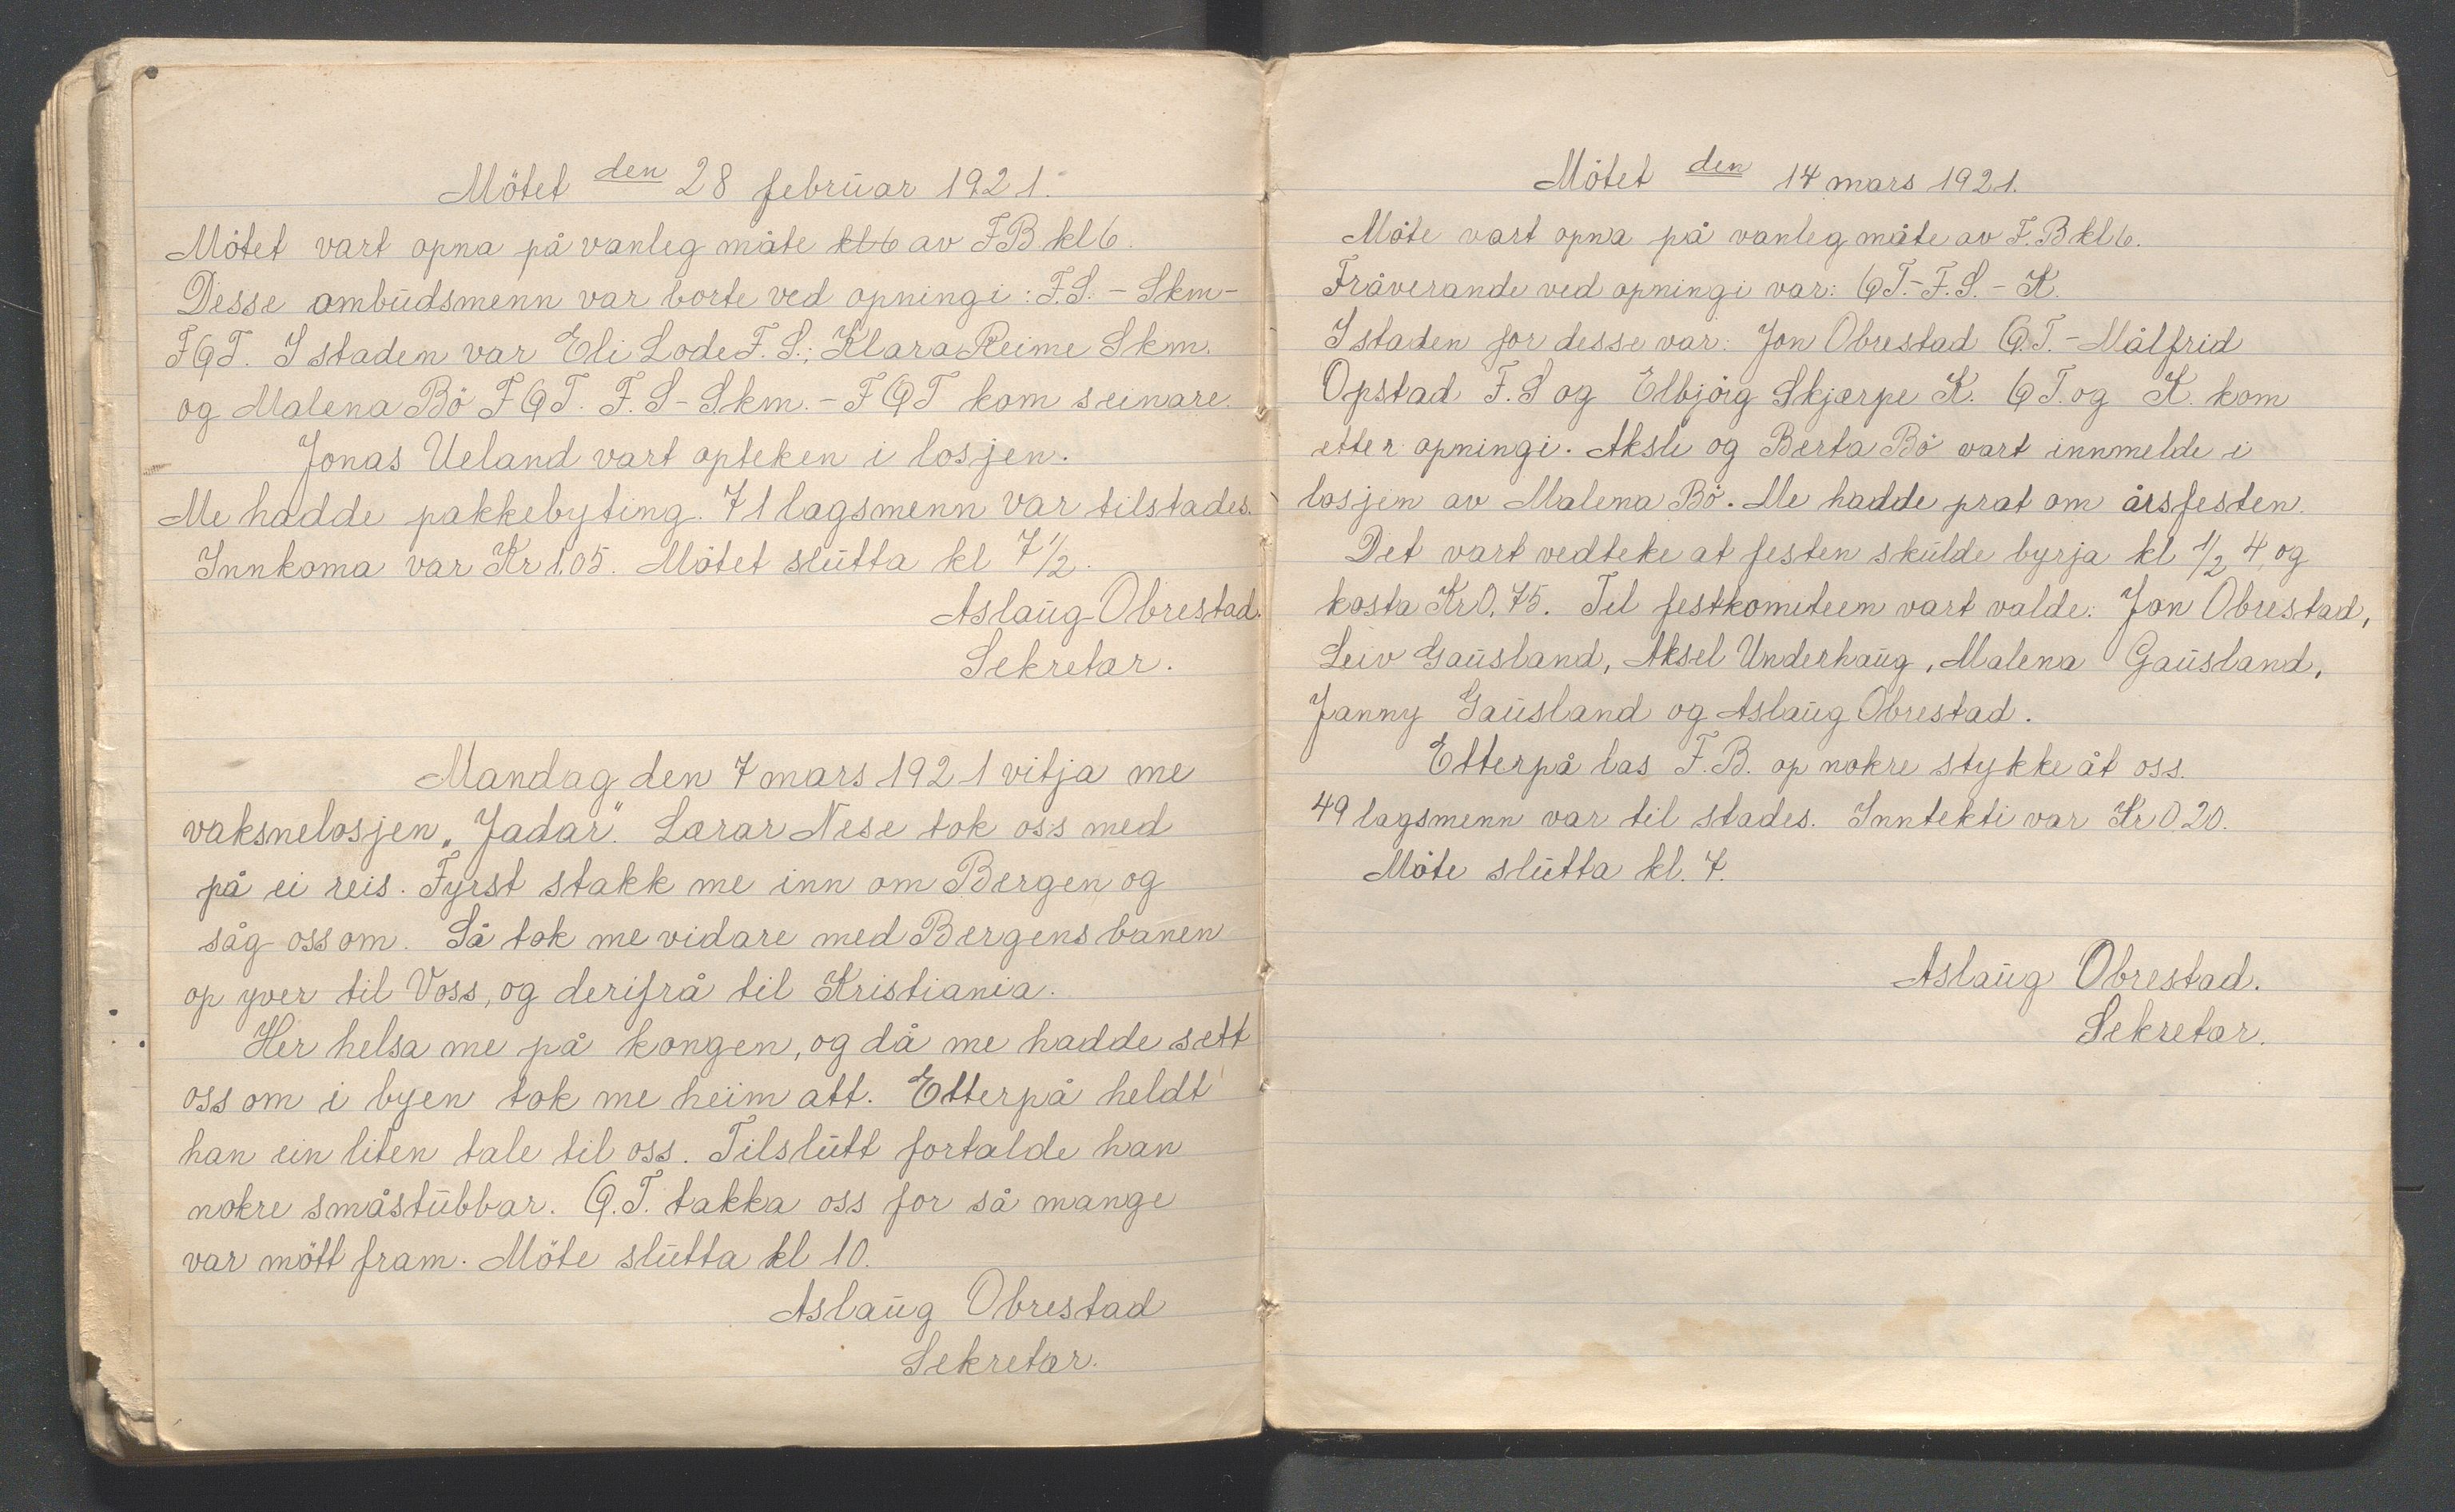 Mötet den 28 februar 1921.
Mötet vart opna på vanleg måte kl 6 av F B kl 6.
Desse ambudsmenn var borte ved opningi: F.S. - Skm -
F Q T. I staden var Eli Lode F. S.; Klara Reime Skm.
og Malena Bö F Q T. F. S - Skm. - F Q T kom seinare.
Jonas Ueland vart opteken i losjen.
Me hadde pakkebyting. 71 lagsmenn var tilstades.
Innkoma var Kr 1,05. Mötet slutta kl 7 1/2.
Aslaug Obrestad.
Sekretær.
Mandag den 7 mars 1921 vitja me
vaksnelosjen „Jadar". Lærar Nese tok oss med
på ei reis. Fyrst stakk me inn om Bergen og
såg oss om. Så tok me vidare med Bergensbanen
op yver til Voss, og derifrå til Kristiania.
Her helsa me på kongen, og då me hadde sett
oss om i byen tok me heim att. Etterpå heldt
han ein liten tale til oss. Tilslutt fortalde han
nokre småstubbar. Q.T. takka oss for så mange
var mött fram. Möte slutta kl 10.
Aslaug Obrestad
Sekretær.
Mötet den 14 mars 1921.
Möte vart opna på vanleg måte av F. B kl 6.
Fråverande ved opningi var: Q T. - F. S. - K.
I staden for desse var: Jon Obrestad Q.T. - Målfrid
Opstad F. S og Elbjörg Skjærpe K. Q T. og K. kom
etter opningi. Aksli og Berta Bö vart innmelde i
losjen av Malena Bö. Me hadde prat om årsfesten.
Det vart vedteke at festen skulde byrja kl 1/2 4, og
kosta Kr 0,75. Til festkomiteen vart valde: Jon Obrestad,
Leiv Gausland, Aksel Underhaug, Malena Gausland,
Janny Gausland og Aslaug Obrestad.
Etterpå las F. B. op nokre stykke åt oss.
49 lagsmenn var til stades. Inntekti var Kr 0 20.
Möte slutta kl. 7.
Aslaug Obrestad.
Sekretær.